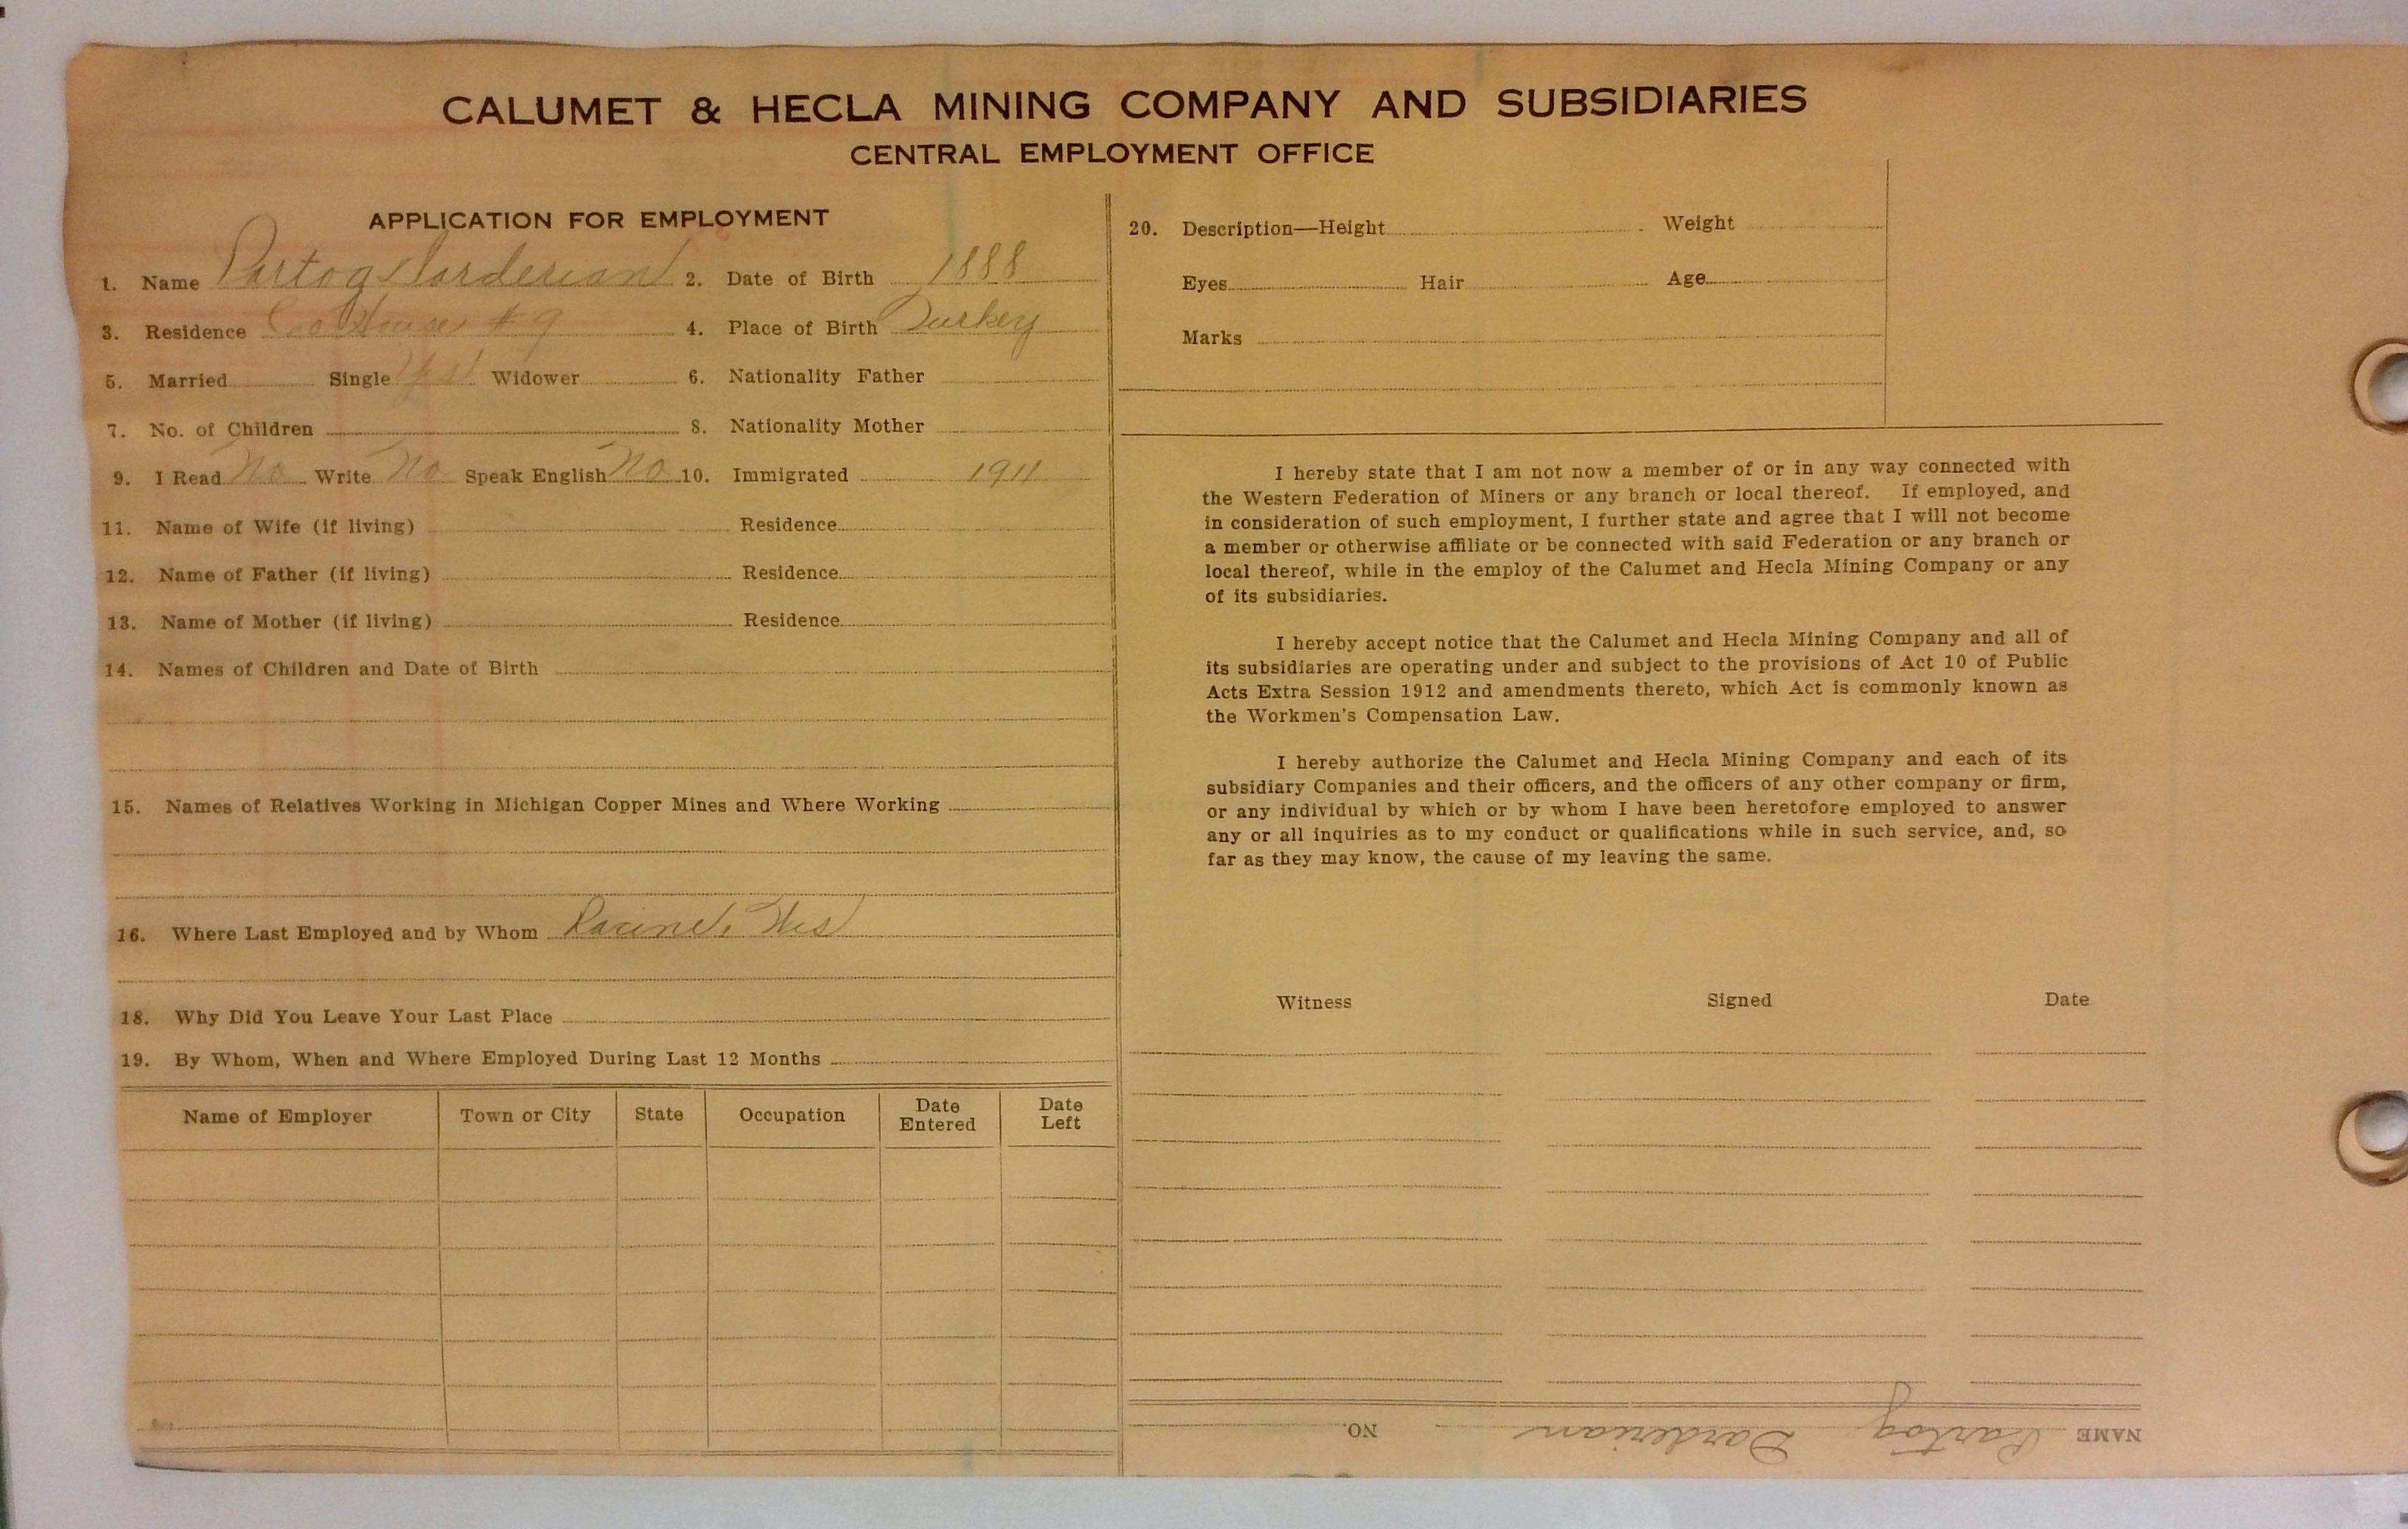 CALUMET & HECLA MINING COMPANY AND SUBSIDIARIES
CENTRAL EMPLOYMENT OFFICE
APPLICATION FOR EMPLOYMENT
1. Name Partog Darderian 2. Date of Birth 1888
3. Residence Co House #9 4. Place of Birth Turkey
5. Married Single Yes Widower 6. Nationality Father
7. No. of Children 8. Nationality Mother
9. I Read No Write No Speak English No 10. Immigrated 1911
11. Name of Wife (if living) Residence
12. Name of Father (if living) Residence
13. Name of Mother (if living) Residence
14. Names of Children and Date of Birth
15. Names of Relatives Working in Michigan Copper Mines and Where Working
16. Where Last Employed and by Whom Racine, Wis
18. Why Did You Leave Your Last Place
19. By Whom, When and Where Employed During Last 12 Months
Name of Employer Town or City State Occupation Date Entered Date Left
20. Description—Height Weight
Eyes Hair Age
Marks
I hereby state that I am not now a member of or in any way connected with
the Western Federation of Miners or any branch or local thereof. If employed, and
in consideration of such employment, I further state and agree that I will not become
a member or otherwise affiliate or be connected with said Federation or any branch or
local thereof, while in the employ of the Calumet and Hecla Mining Company or any
of its subsidiaries.
I hereby accept notice that the Calumet and Hecla Mining Company and all of
its subsidiaries are operating under and subject to the provisions of Act 10 of Public
Acts Extra Session 1912 and amendments thereto, which Act is commonly known as
the Workmen's Compensation Law.
I hereby authorize the Calumet and Hecla Mining Company and each of its
subsidiary Companies and their officers, and the officers of any other company or firm,
or any individual by which or by whom I have been heretofore employed to answer
any or all inquiries as to my conduct or qualifications while in such service, and, so
far as they may know, the cause of my leaving the same.
Witness Signed Date
NAME Partog Darderian NO.